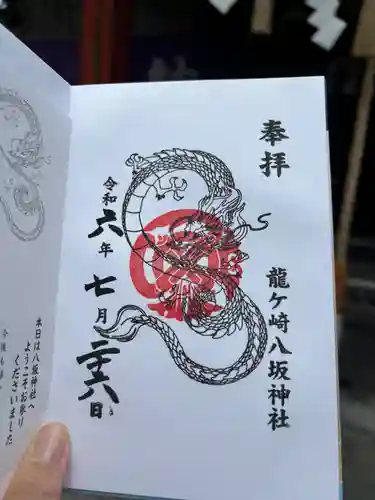 奉拝
龍ケ崎八坂神社
令和
六年
七月
二十六日
本日は八坂神社へ
ようこそお参り
くださいました